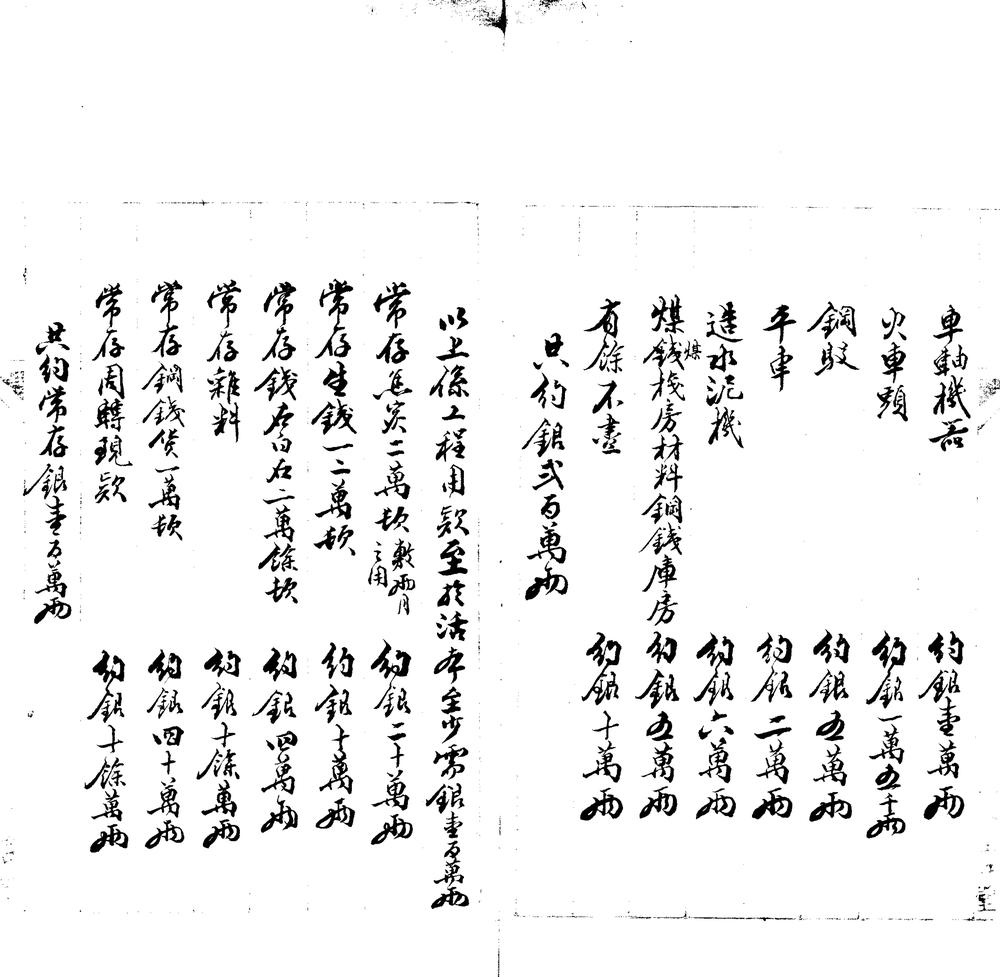 車軸機器 約銀壹萬兩
火車頭 約銀一萬五千兩
鋼駁 約銀五萬兩
平車 約銀二萬兩
造水泥機 約銀六萬兩
煤銭煤棧房材料鋼銭庫房 約銀五萬兩
有餘不盡 約銀十萬兩
共約銀弍百萬兩
以上係工程用款至於活本至少需銀壹百萬兩
常存焦炭二萬頓敷兩月之用 約銀二十萬兩
常存生銭一二萬頓 約銀十萬兩
常存銭石白石二萬餘頓 約銀四萬兩
常存雜料 約銀十餘萬兩
常存鋼銭貨一萬頓 約銀四十萬兩
常存周轉現款 約銀十餘萬兩
共約常存銀壹百萬兩